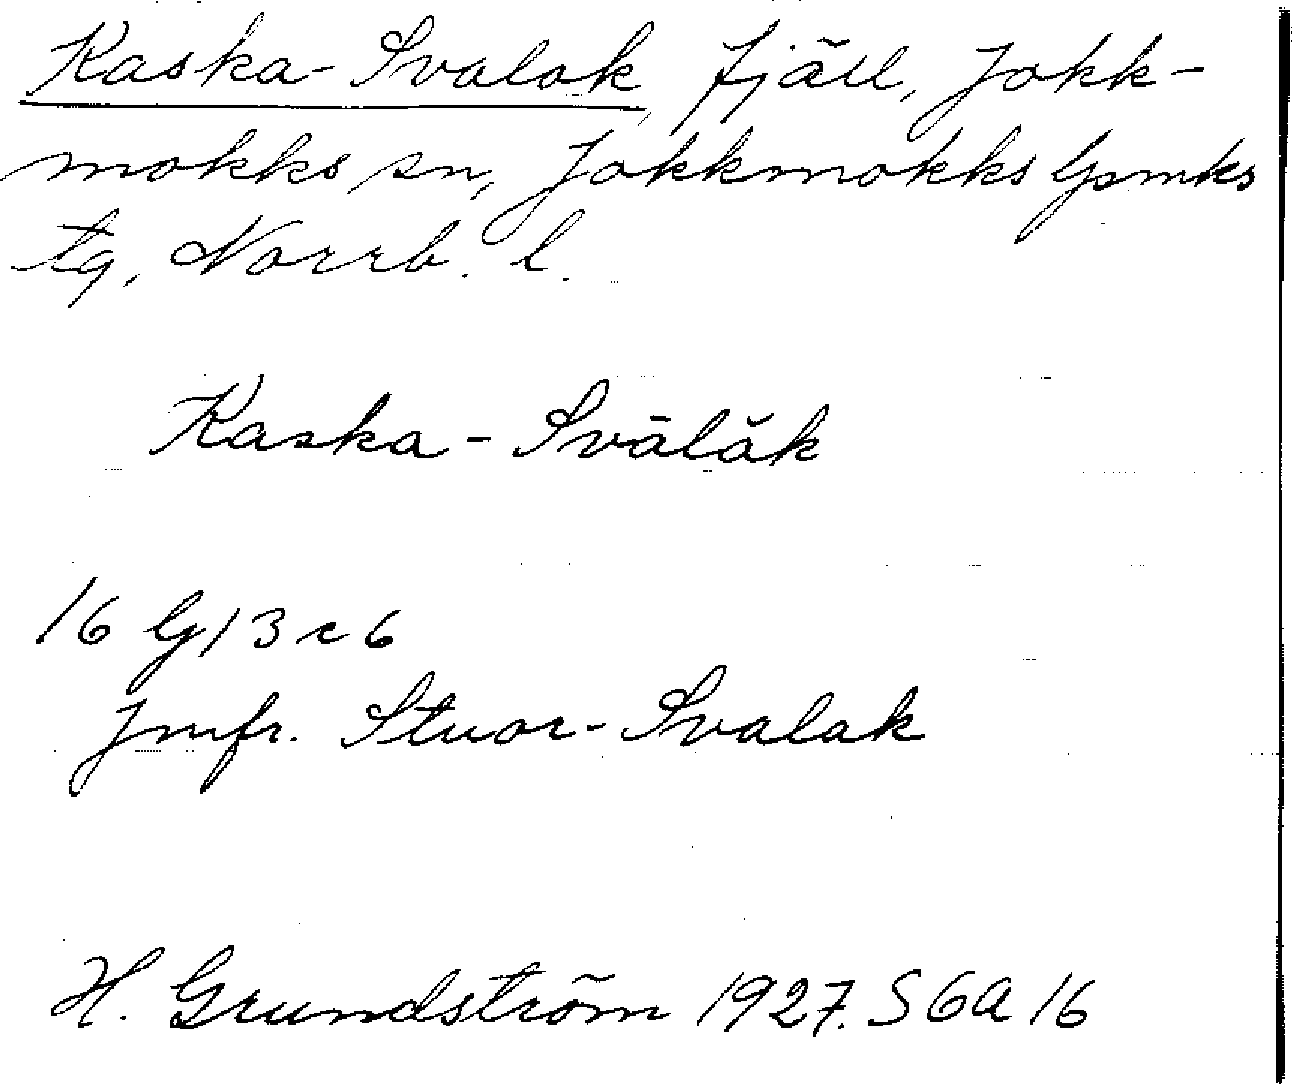 Kaska-Svalok, fjäll, Jokk-
mokks sn, Jokkmokks Gsmks
tg, Norrb. l.
Kaska-Svālăk
16 G 13 c 6
Jmfr. Stuor-Svalak
H. Grundström 1927. S 6 a 16